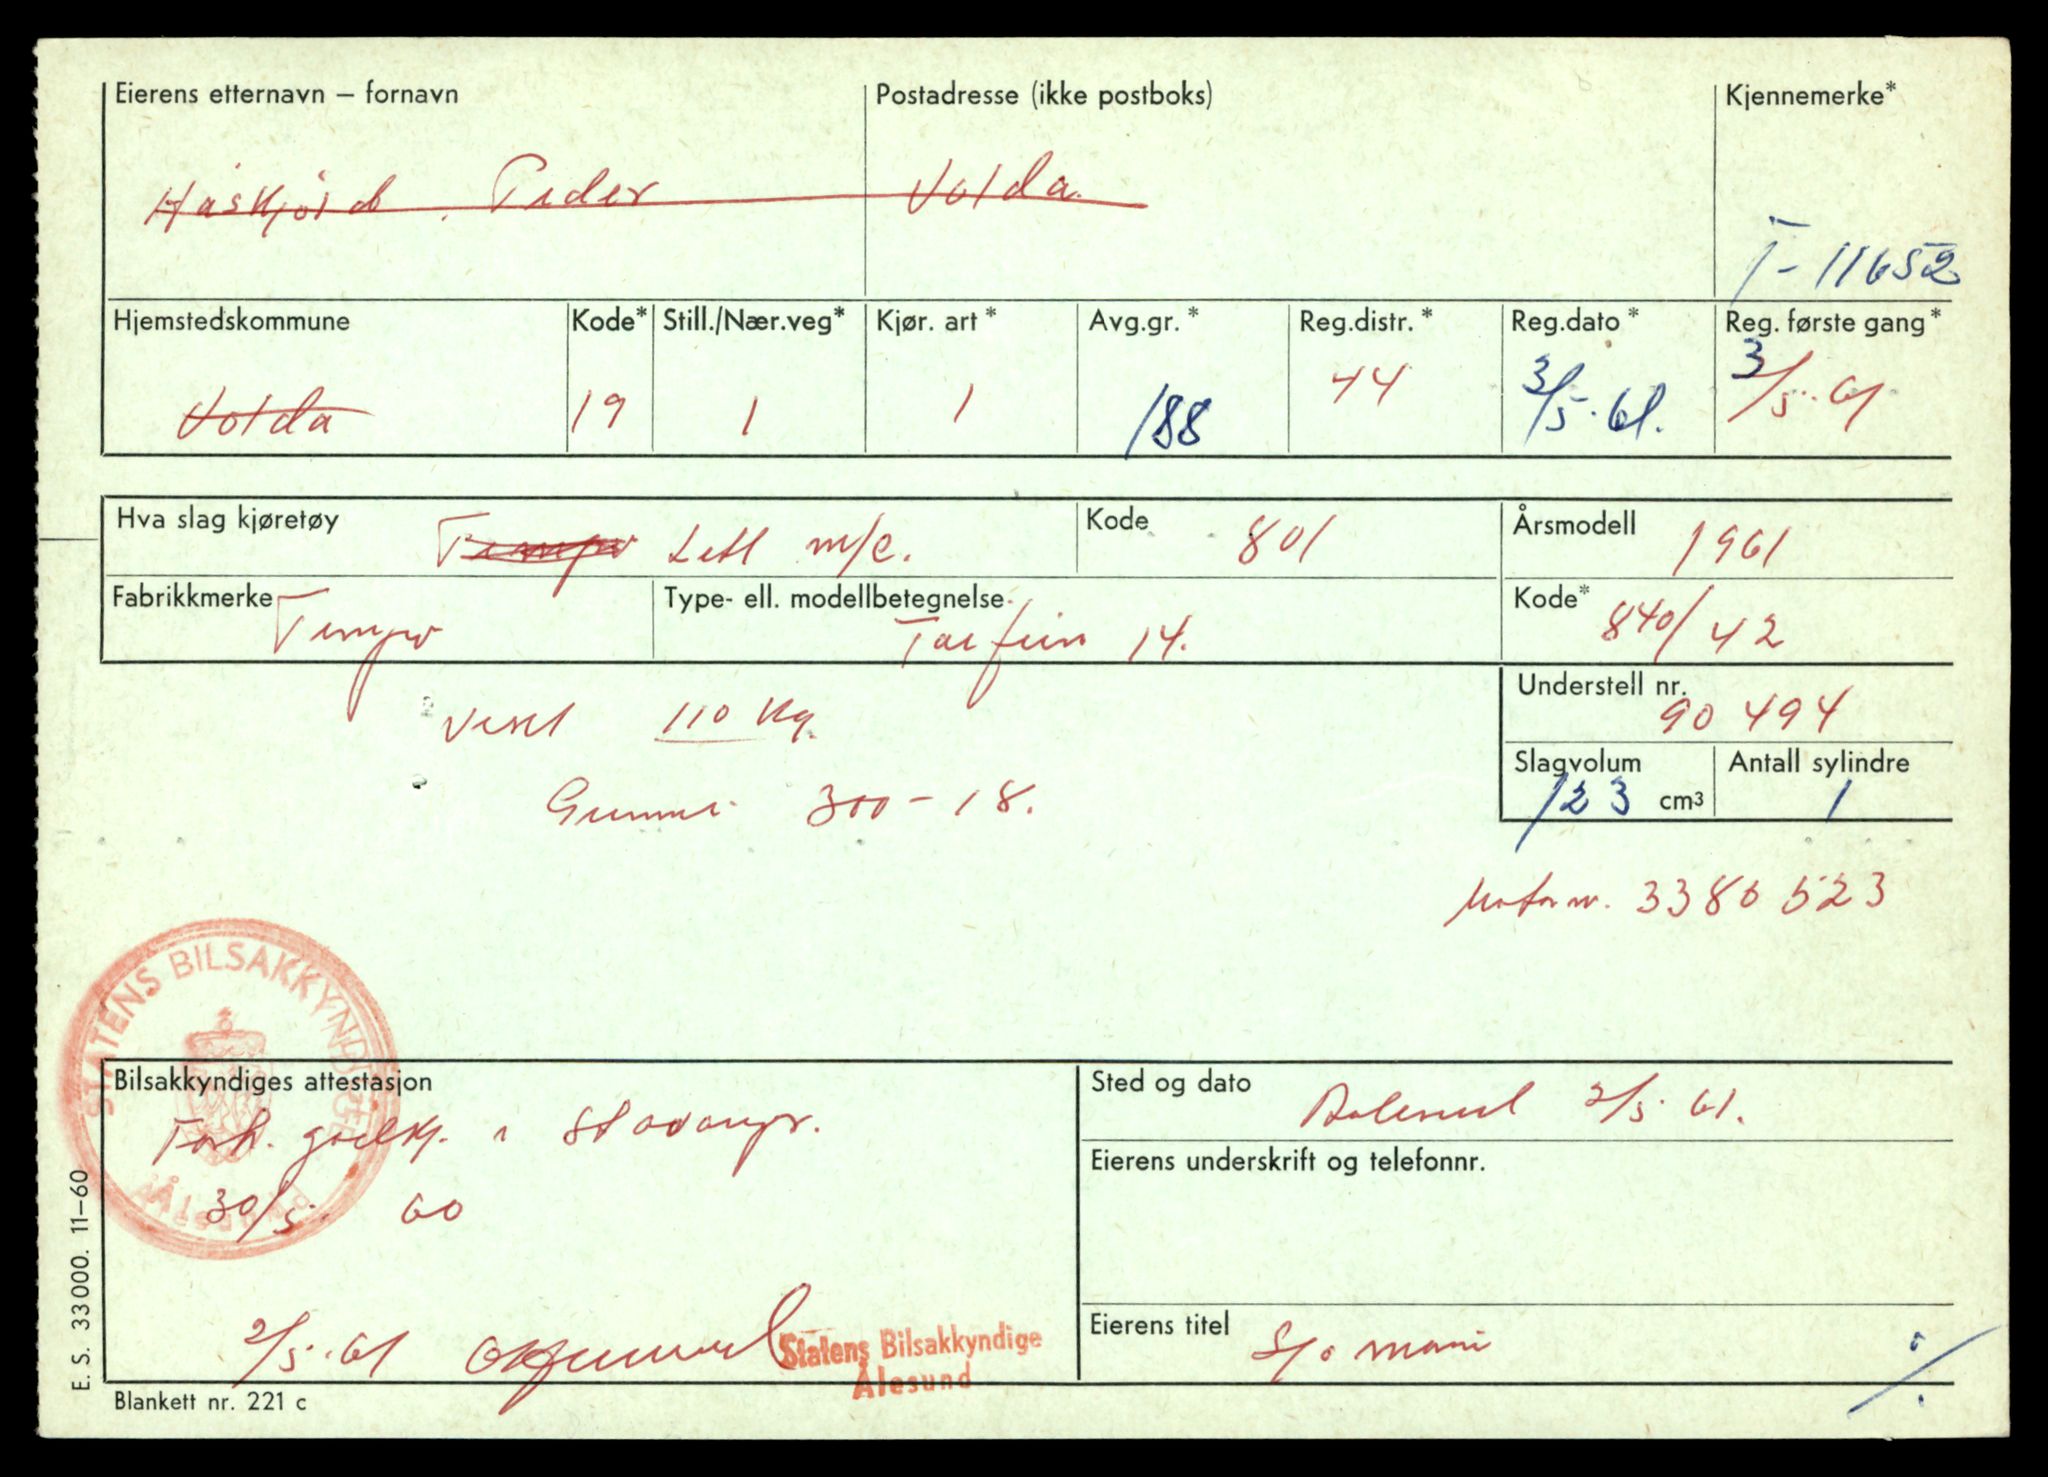 Eierens etternavn – fornavn
Postadresse (ikke postboks)
Kjennemerke*
Håskjold, Peder
Volda.
T-11652
Hjemstedskommune
Kode*
Still./Nær.veg*
Kjør. art*
Avg.gr.*
Reg.distr.*
Reg.dato*
Reg. første gang*
Volda
19
1
1
188
44
3/5.61.
3/5.61
Hva slag kjøretøy
Tempo Lett m/c.
Kode
801
Årsmodell
1961
Fabrikkmerke
Tempo
Type- ell. modellbetegnelse
14.
Kode*
840/42
Vekt 110 kg.
Understell nr.
90494
Gummi 300-18.
Slagvolum
123 cm3
Antall sylindre
1
Motor nr. 3380523
STATENS BILSAKKYNDIGE
Ålesund
Bilsakkyndiges attestasjon
Forh. godkj. i Stavanger.
30/5. 60
2/5.61
Statens Bilsakkyndige
Ålesund
Sted og dato
Aalesund 2/5.61.
Eierens underskrift og telefonnr.
Eierens titel
Sjømann
E. S. 33000. 11–60
Blankett nr. 221 c